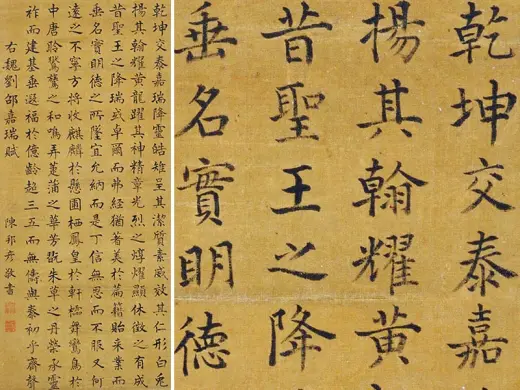 乾坤交泰嘉瑞降靈皓雉呈其潔質素威效其仁形白兔
揚其翰耀黃龍躍其神精章光烈之焞燿顯休徵之有成
昔聖王之降瑞或卓爾而弗經猶著美於篇籍貽采業而
垂名實明德之所墜宜允納而是丁信無思而不服又何
遠之不寧方將收麒麟於懸圃栖鳳皇於軒檽舞鸞鳥於
中唐聆鸑鷟之和鳴弄萐蒲之華芳翫朱草之丹榮承靈
祚而建基垂遐福於億齡超三五而無儔與泰初乎齊聲
右魏劉邵嘉瑞賦
陳邦彥敬書
乾坤交泰嘉
揚其翰耀黃
昔聖王之降
垂名實明德